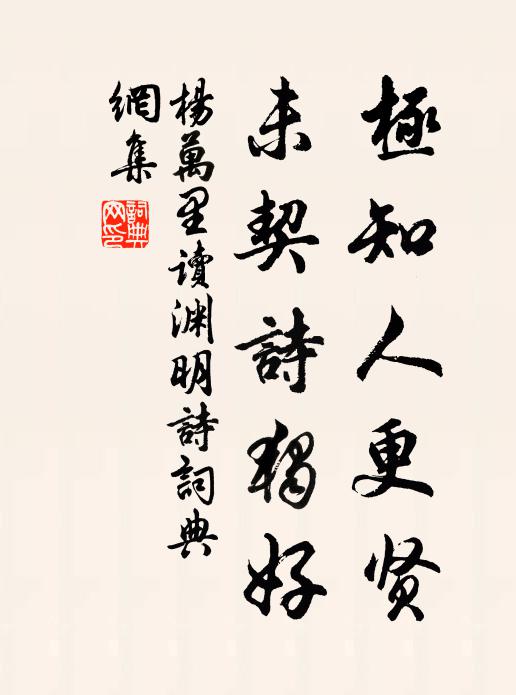 極知人更贤
未契詩獨好
楊萬里讀渊明詩詞典
網集
詞典
网印